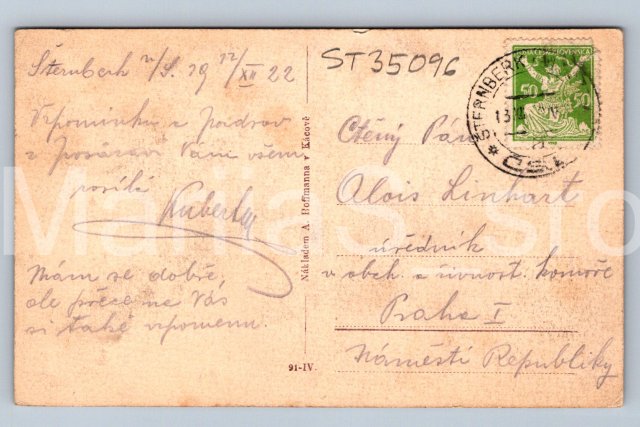 Šternberk n/S. 19 12/XII 22
ST35096
Vzpomínku a Pozdrav
z Posázaví Vám všem
posílá
Kubert
Mám se dobře,
ale přece na Vás
si také vzpomenu.
Nákladem A. Hoffmanna v Kácově
91-IV.
Ctěný Pán
Alois Linhart
úředník
v obch. a živnost. komoře
Praha I
Náměstí Republiky
ŠTERNBERK
13
ČSR
50 50